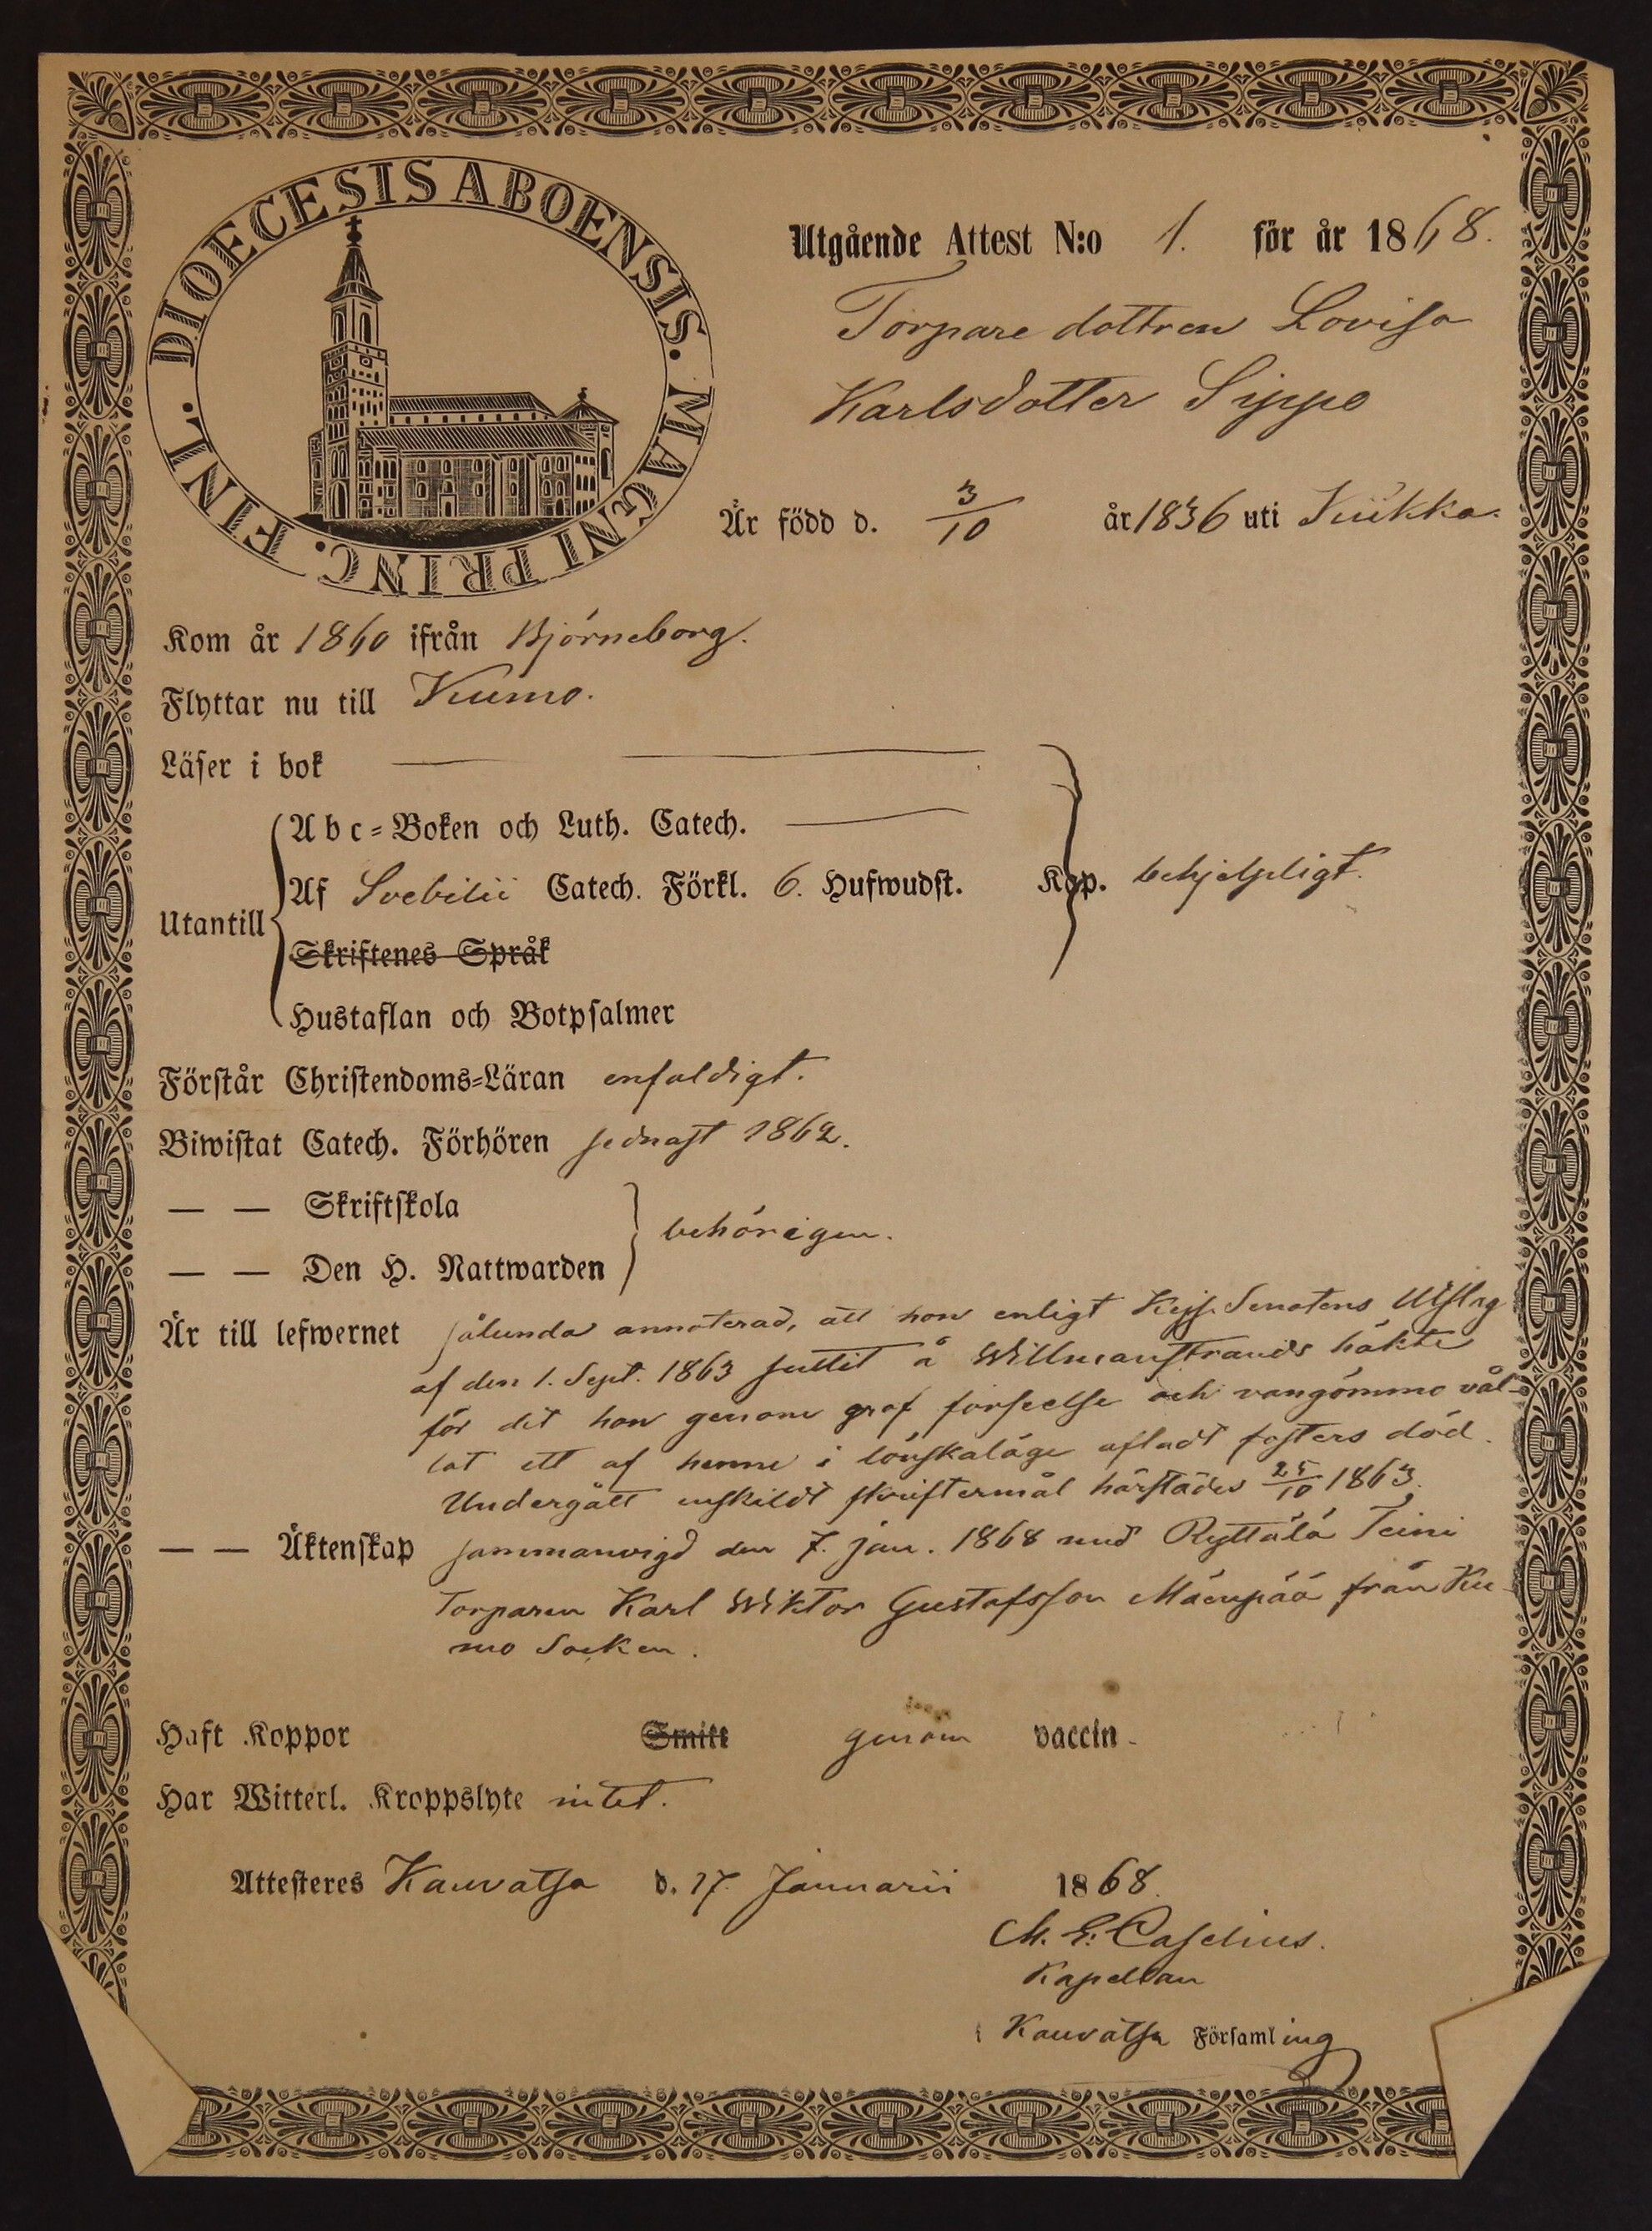 DIOECESIS ABOENSIS. MAGNI PRINC. FINL.
Utgående Attest N:o 1. för år 1868.
Torpare dottren Lovisa
Karlsdotter Sippo
Är född d. 3/10 år 1836 uti Kiikka.
Kom år 1860 ifrån Björneborg.
Flyttar nu till Kumo.
Läser i bok
Abc-Boken och Luth. Catech.
Utantill Af Svebilii Catech. Förkl. 6. Hufwudst. Kap. behjelpligt.
Skriftenes Språk
Hustaflan och Botpsalmer
Förstår Christendoms-Läran enfaldigt.
Biwistat Catech. Förhören sednast 1862.
— — Skriftskola
behörigen.
— — Den H. Nattwarden
Är till lefwernet sålunda annoterad, att hon enligt Kejs. Senatens Utslag
af den 1. Sept. 1863 suttit å Willmanstrands häkte
för det hon genom grof förseelse och vangömmo vål-
lat ett af henne i lönskaläge afladt fosters död.
Undergått enskildt skriftermål härstädes 25/10 1863.
— — Äktenskap sammanvigd den 7. jan. 1868 med Ryttälä Teini
Torparen Karl Wiktor Gustafsson Mäenpää från Ku-
mo Socken.
Haft Koppor Smitt genom vaccin.
Har Witterl. Kroppslyte intet.
Attesteres Kauvatsa d. 17 Januarii 1868.
M. E. Caselius.
Kapellan
i Kauvatsa Församling